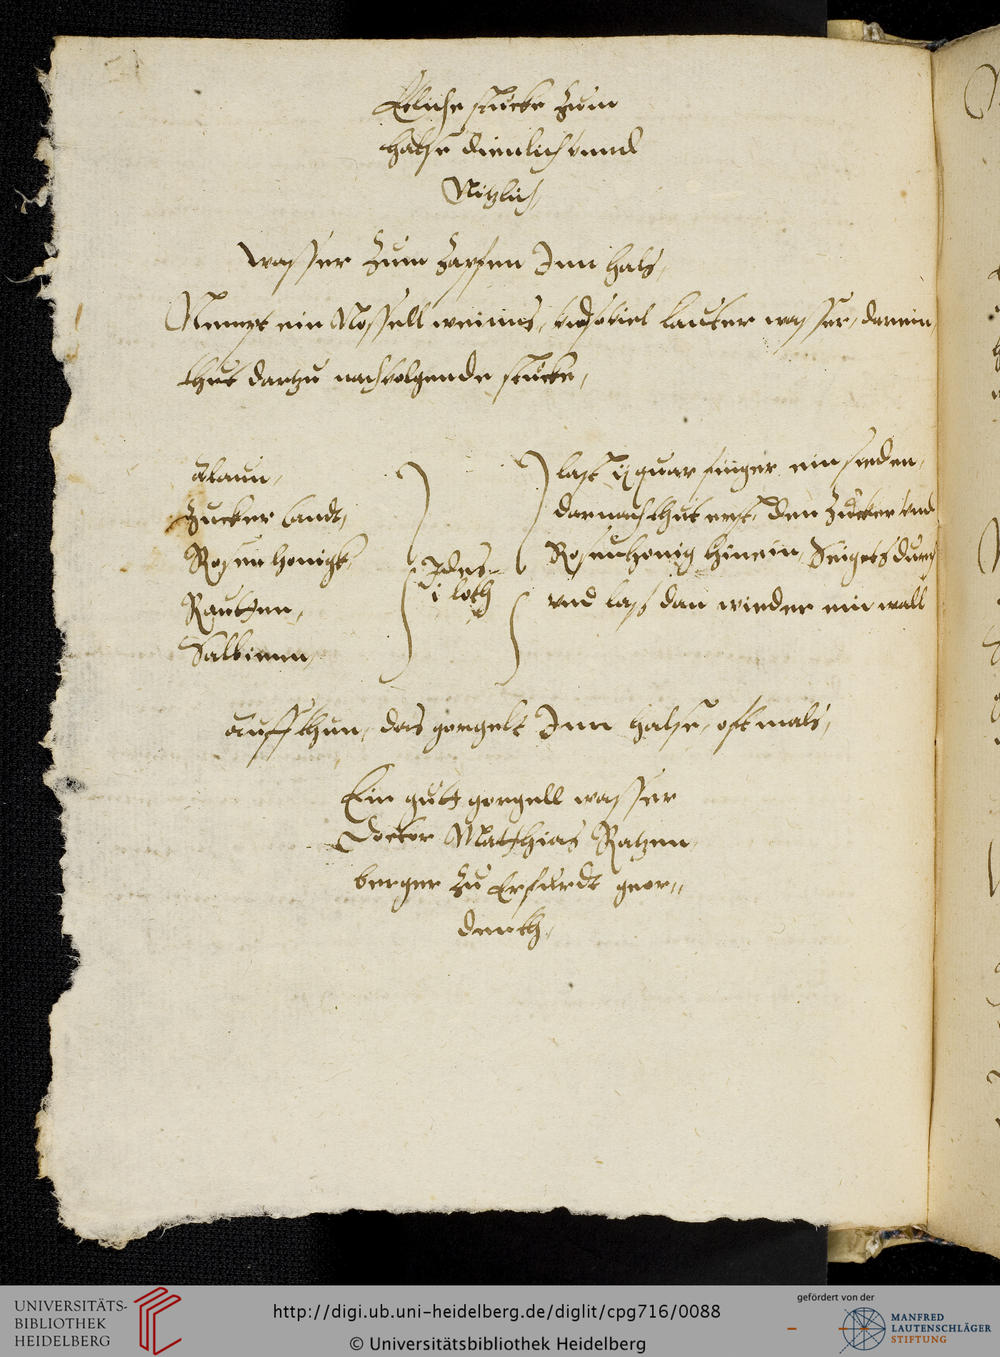 Etliche stucke zum
halse dienlich vnnd
Nitzlich,
Wasser zum Zapfen Inn hals,
Nempt ein Nossell weinns, vnd souiel lauter wasser, darein
thut dartzu nachuolgende stucke,
Alaun,
Zucker Candt,
Rosen honigk,
Rautten,
Salbienn,
Jdes
i loth
last ij quer finger ein sieden,
darnach thut erst, den Zucker vnd
Rosenhonig hinein, Seigets durch
vnd lass dan wieder ein wall
auff thun, das gorgelt Inn halse, offtmals,
Ein gutt gorgell wasser
Doctor Matthias Ratzen
berger zu Erfurdt geor„
denth,
UNIVERSITÄTS-
BIBLIOTHEK
HEIDELBERG
http://digi.ub.uni-heidelberg.de/diglit/cpg716/0088
© Universitätsbibliothek Heidelberg
gefördert von der
MANFRED
LAUTENSCHLÄGER
STIFTUNG